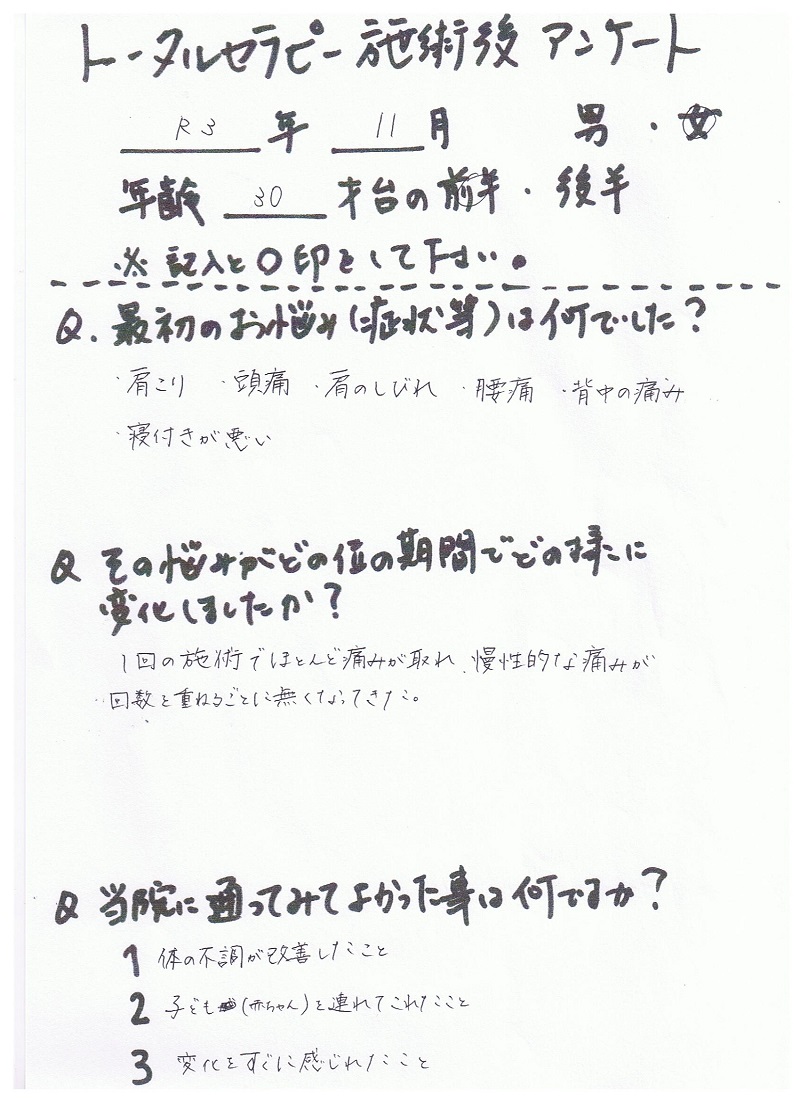 トータルセラピー施術後 アンケート
R3 年 11 月 男・女
年齢 30 才台の前半・後半
※ 記入と〇印をして下さい。
Q. 最初のお悩み(症状等)は何でした?
・肩こり ・頭痛 ・肩のしびれ ・腰痛 ・背中の痛み
・寝付きが悪い
Q その悩みがどの位の期間でどの様に
変化しましたか?
1回の施術でほとんど痛みが取れ、慢性的な痛みが
回数を重ねるごとに無くなってきた。
Q 当院に通ってみてよかった事は何ですか?
1 体の不調が改善したこと
2 子ども(赤ちゃん)を連れてこれたこと
3 変化をすぐに感じれたこと